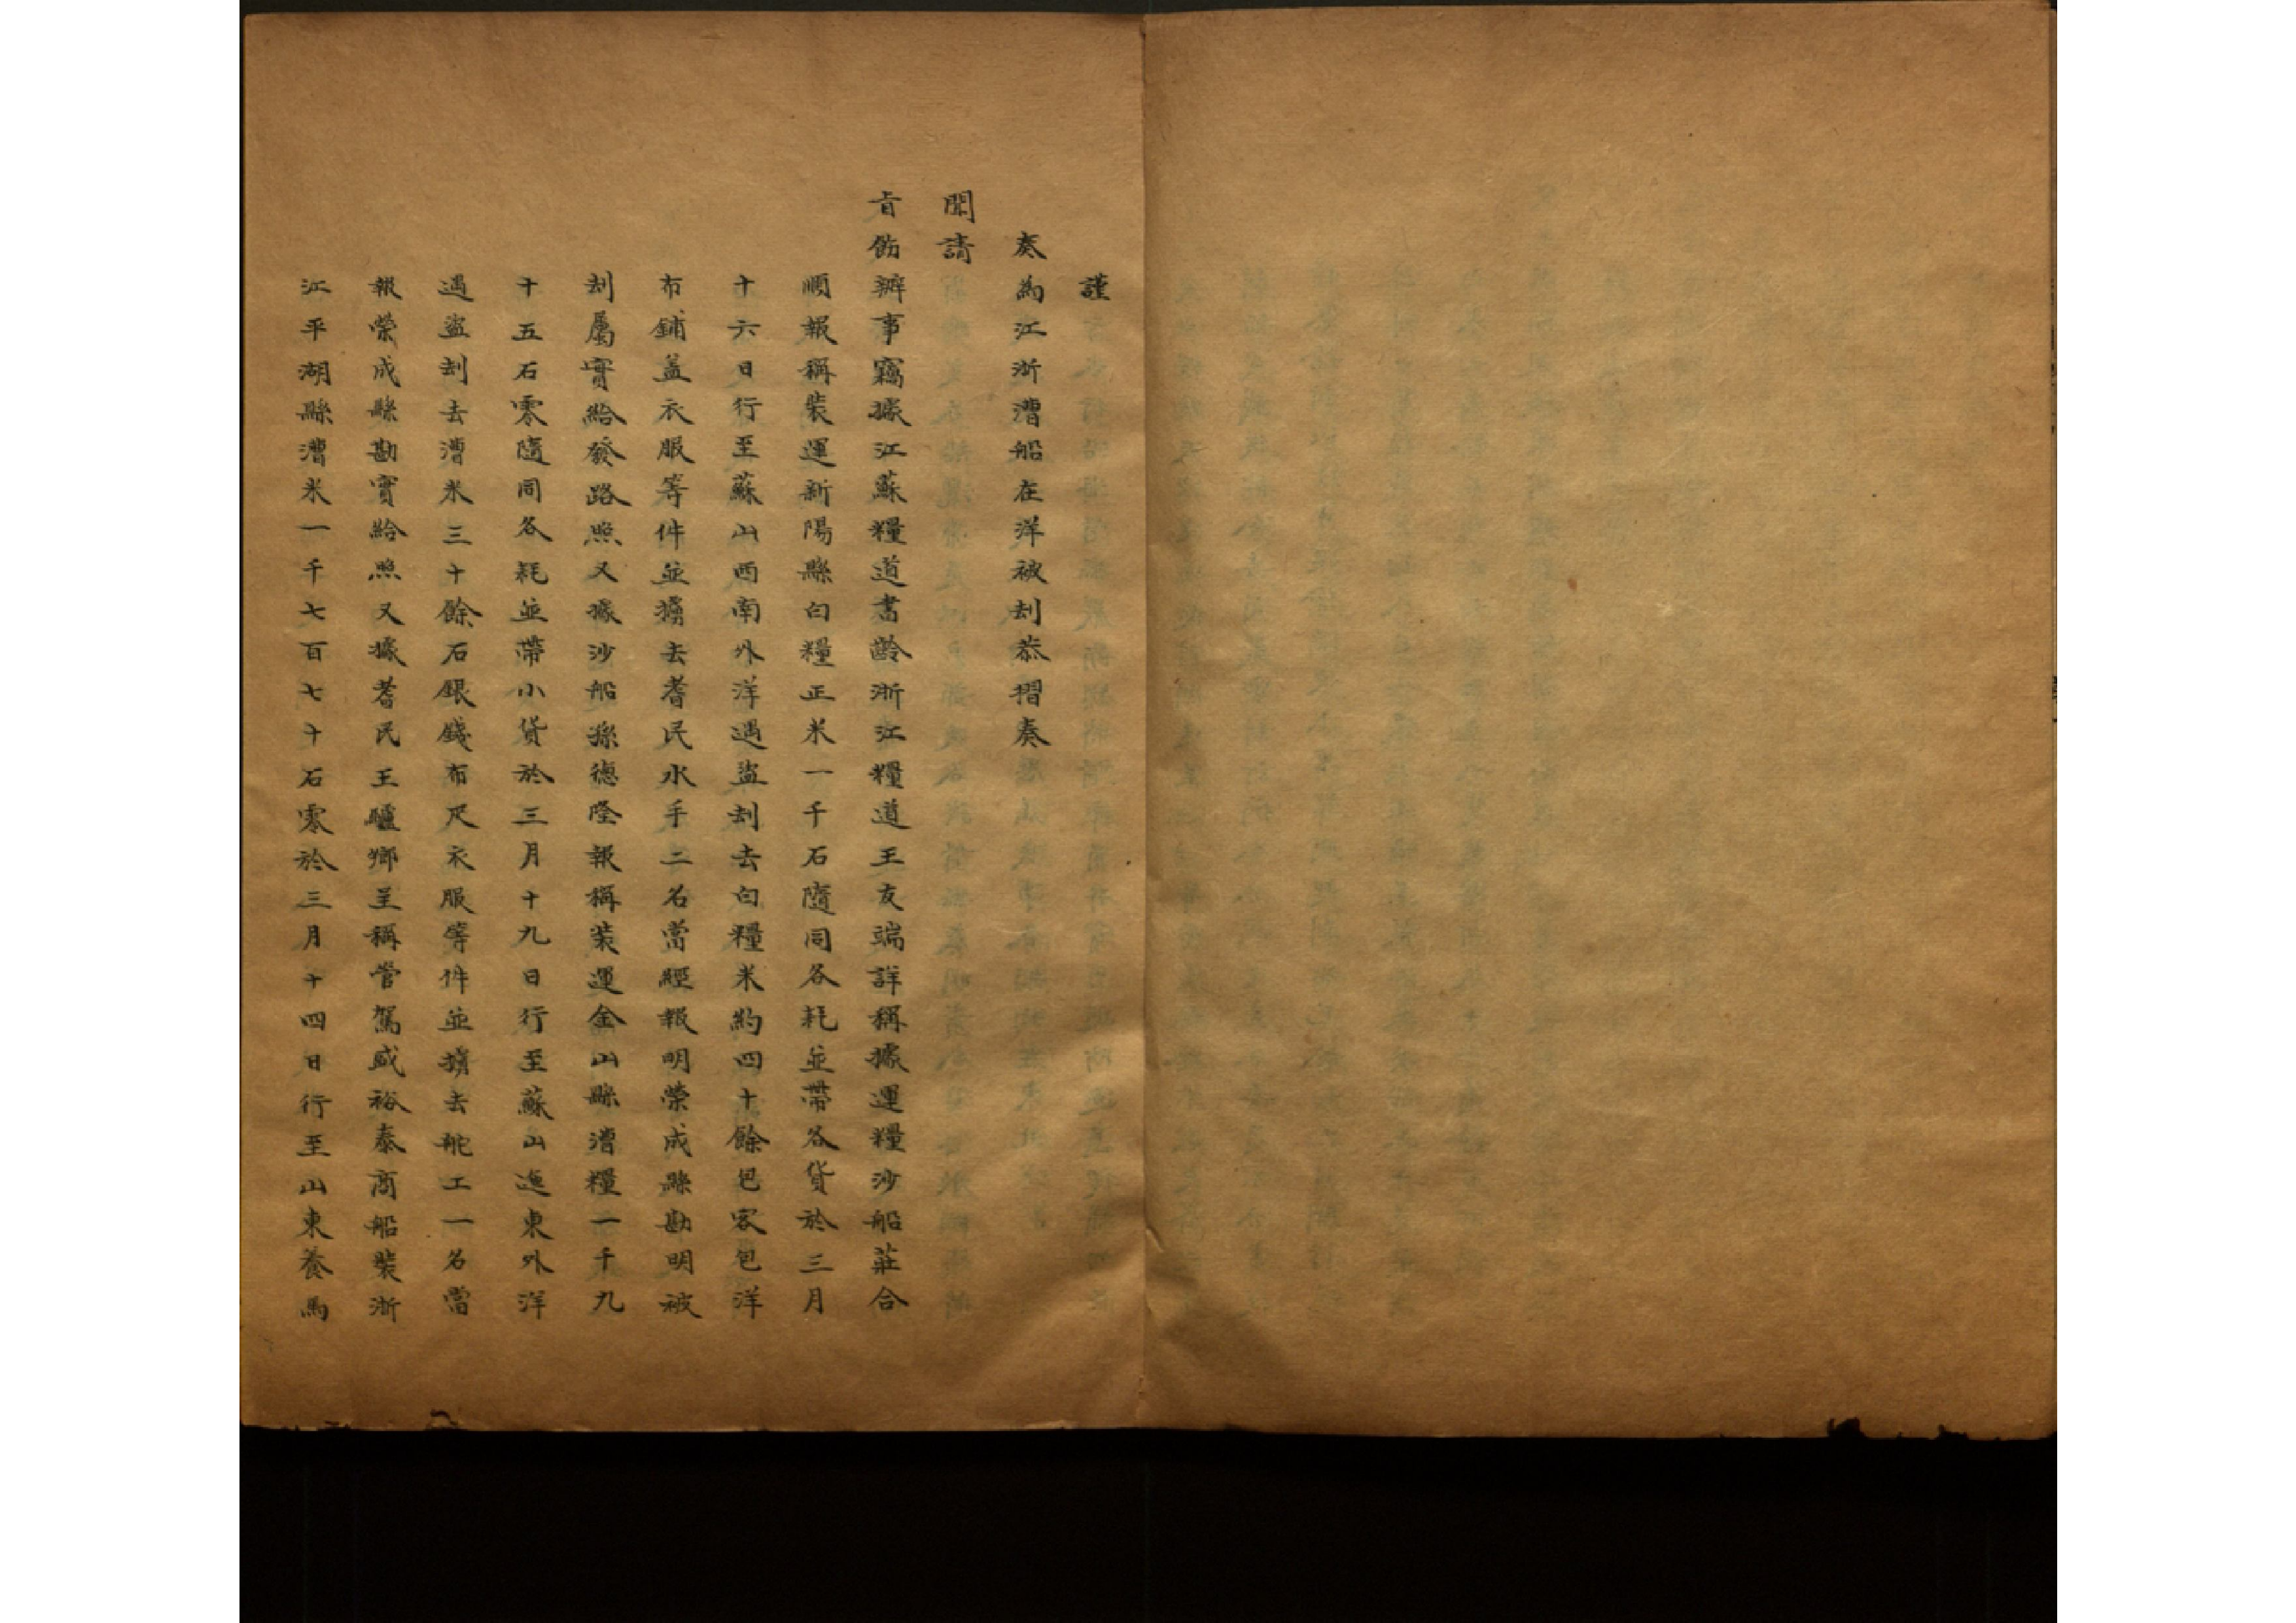 謹
奏為江浙漕船在洋被刦恭摺奏
聞請
旨飭辦事竊據江蘇糧道書齡浙江糧道王友端詳稱據運糧沙船莊合
順報稱裝運新陽縣白糧正米一千石隨同各耗並帶各貨於三月
十六日行至蘇山西南外洋遇盜刦去白糧米約四十餘包客包洋
布鋪蓋衣服等件並擄去耆民水手二名當經報明榮成縣勘明被
刦屬實給發路照又據沙船孫德隆報稱裝運金山縣漕糧一千九
十五石零隨同各耗並帶小貨於三月十九日行至蘇山迤東外洋
遇盜刦去漕米三十餘石銀錢布疋衣服等件並擄去舵工一名當
報榮成縣勘實給照又據耆民王驢鄉呈稱管駕盛裕泰商船裝浙
江平湖縣漕米一千七百七十石零於三月十四日行至山東養馬